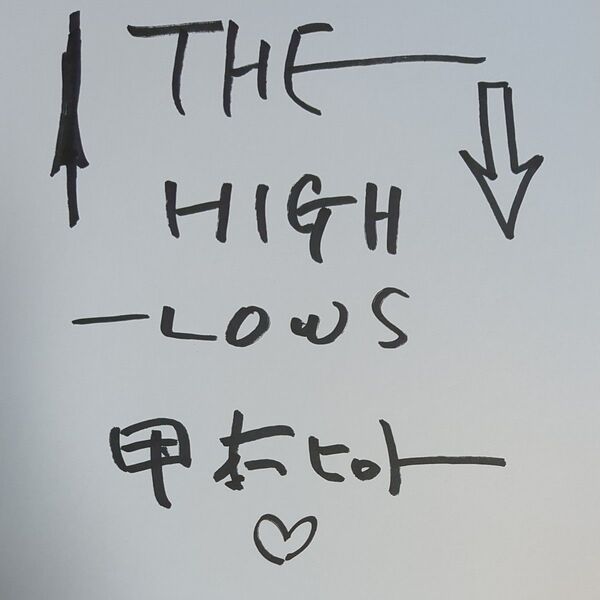 THE
HIGH
-LOWS
甲本ヒロト